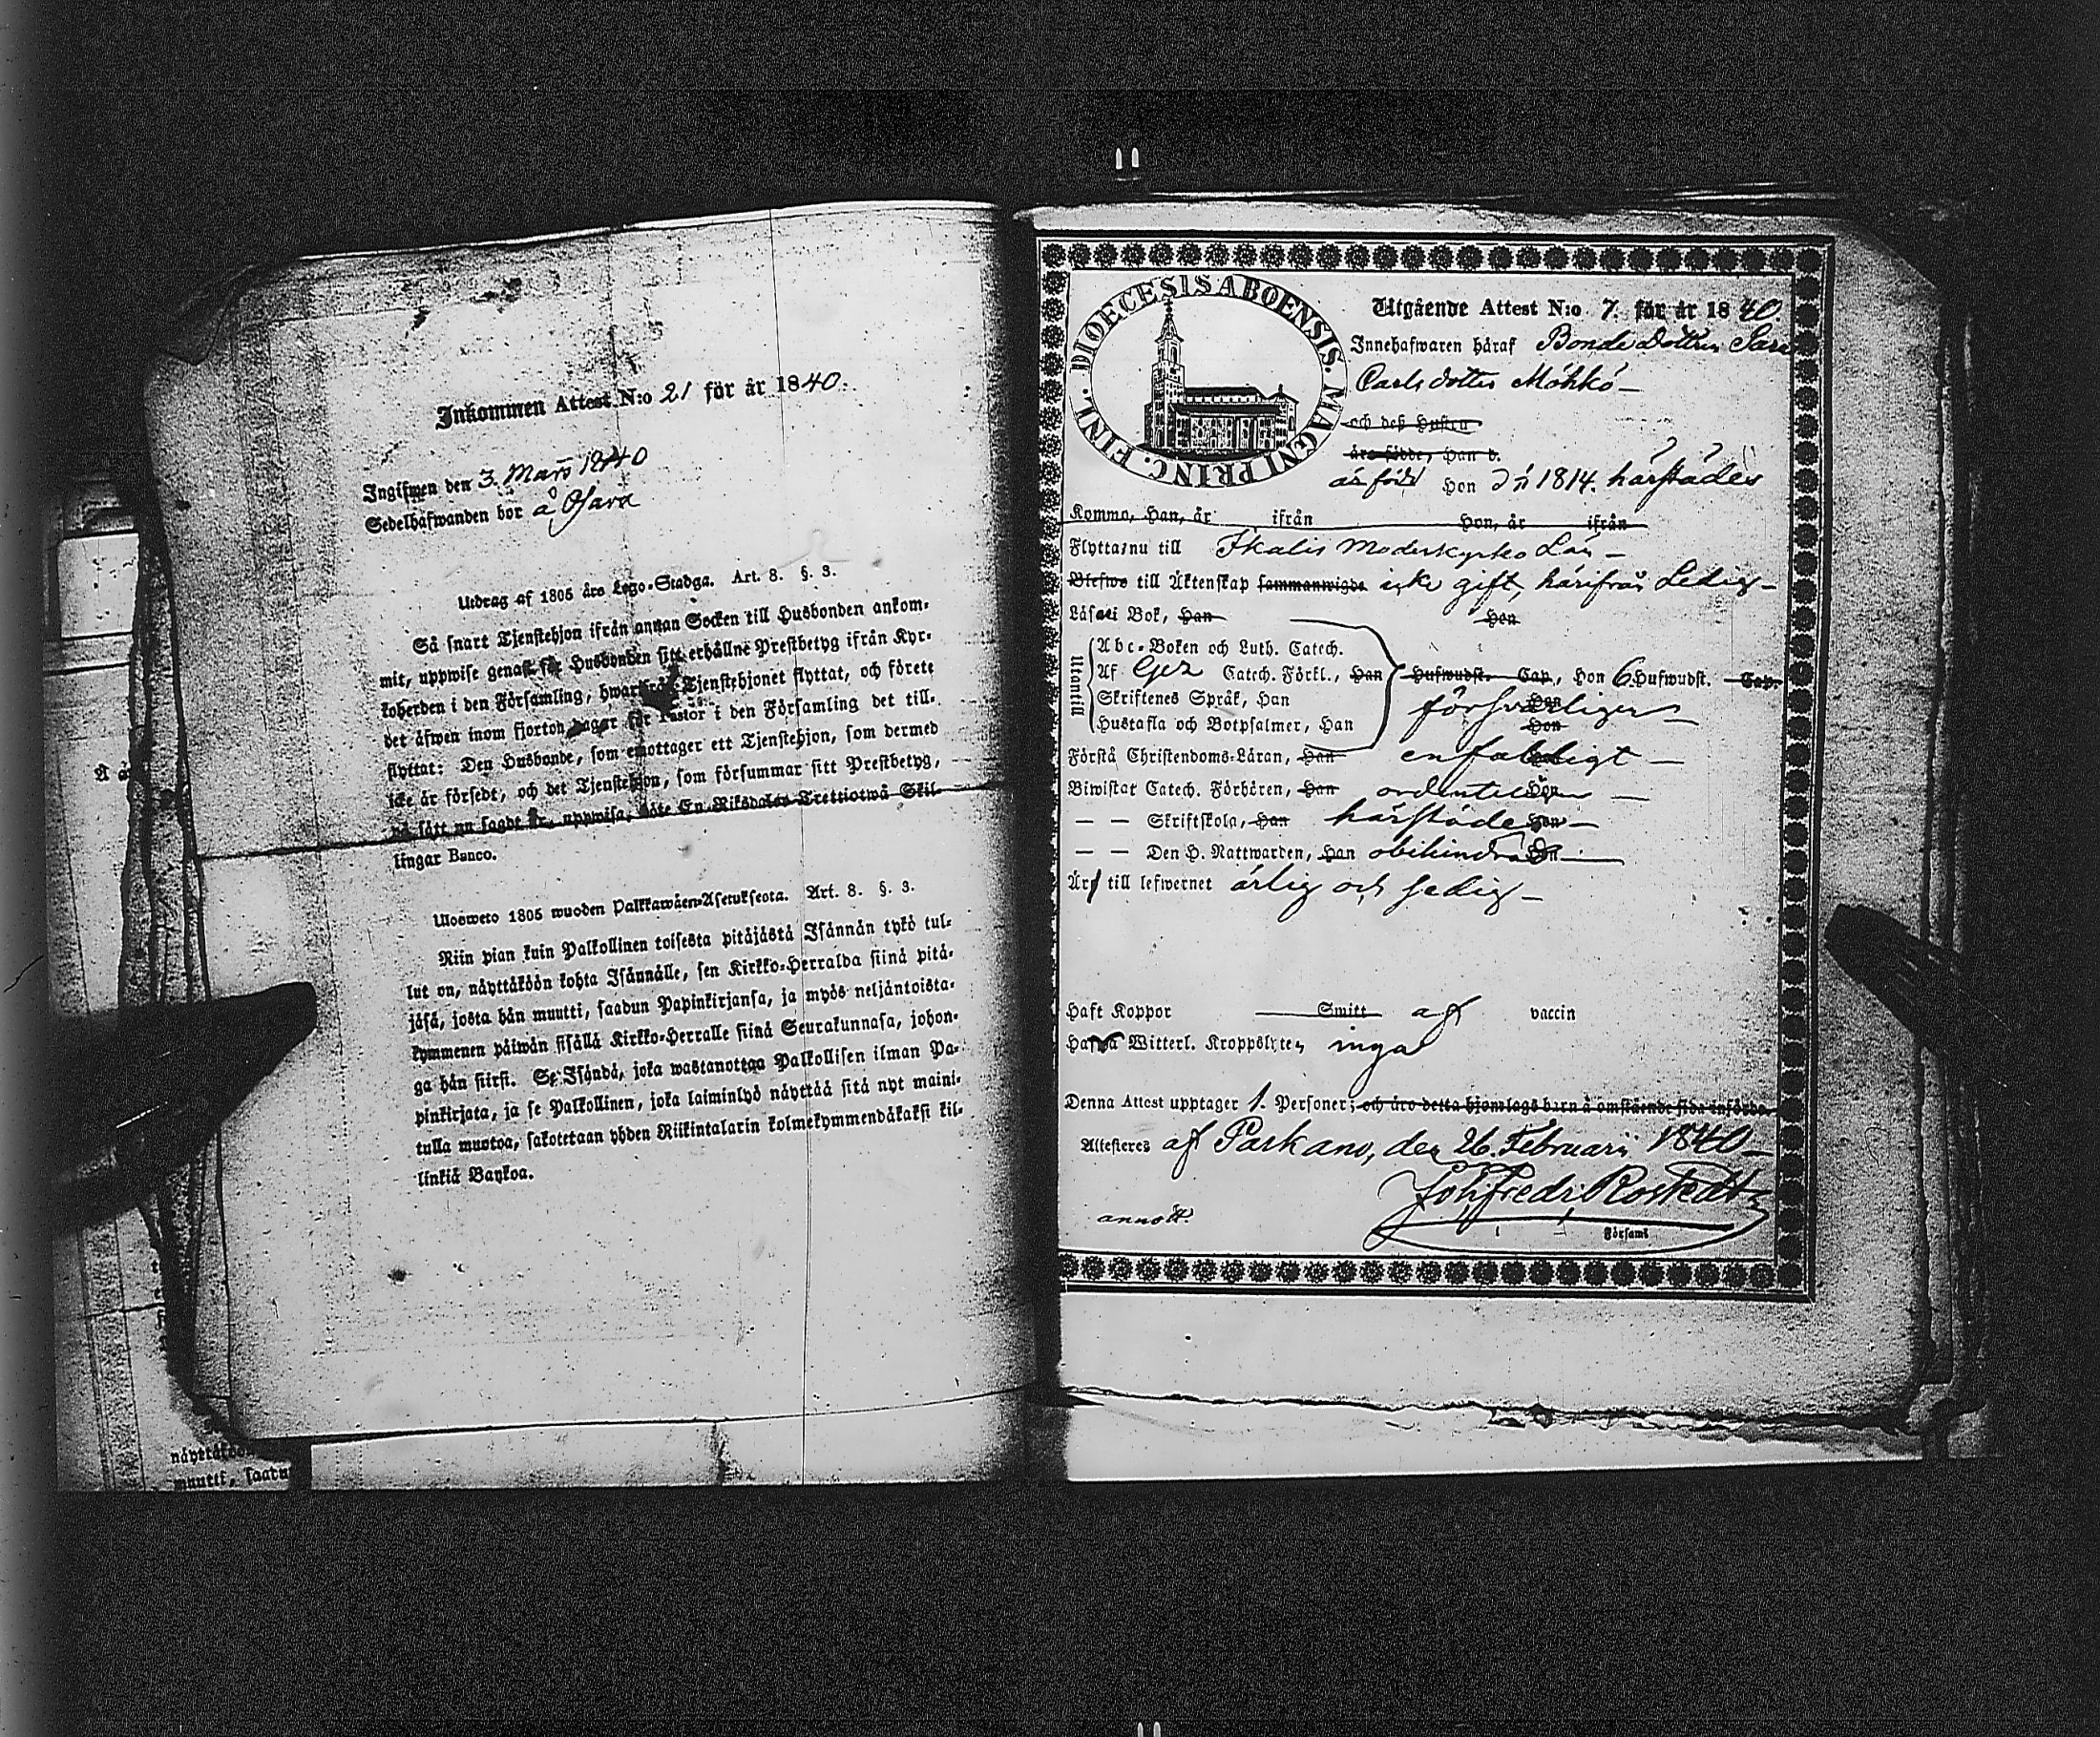 Inkommen Attest N:o 21 för år 1840.
Ingifwen den 3. Mars 1840
Sedelhafwanden bor å Osara
Utdrag af 1805 års Lego-Stadga. Art. 8. §. 3.
Så snart Tjenstehjon ifrån annan Socken till Husbonden ankom-
mit, uppwise genast för Husbonden sitt erhållne Prestbetyg ifrån Kyr-
koherden i den Församling, hwarifrån Tjenstehjonet flyttat, och förete
det äfwen inom fjorton dagar för Pastor i den Församling det till-
flyttat: Den Husbonde, som emottager ett Tjenstehjon, som dermed
icke är försedt, och det Tjenstehjon, som försummar sitt Prestbetyg,
på sätt nu sagdt är, uppwisa, böte En Riksdaler Trettiotwå Skil-
lingar Banco.
Ulosweto 1805 wuoden Palkkawäen-Asetuksesta. Art. 8. §. 3.
Niin pian kuin Palkollinen toisesta pitäjästä Isännän tykö tul-
lut on, näyttäköön kohta Isännälle, sen Kirkko-Herralda siinä pitä-
jäsä, josta hän muutti, saadun Papinkirjansa, ja myös neljäntoista-
kymmenen päiwän sisällä Kirkko-Herralle siinä Seurakunnasa, johon-
ga hän siirsi. Se Isändä, joka wastanottaa Palkollisen ilman Pa-
pinkirjata, ja se Palkollinen, joka laiminlyö näyttää sitä nyt maini-
tulla muotoa, sakotetaan yhden Riikintalarin kolmekymmendäkaksi kil-
linkiä Bankoa.
näyttäköön
muutti, saadu
DIOECESIS ABOENSIS. MAGNI PRINC. FINL.
Utgående Attest N:o 7. för år 1840.
Innehafwaren häraf Bonde Dottren Sara
Carls dotter Möhkö
och deß Hustru
äro födde, Han d.
är född Hon d 1814. härstädes
Kommo, Han, år ifrån Hon, år ifrån
Flyttar nu till Ikalis Moderkyrko
Blefwo till Äktenskap sammanwigde icke gift, härifrån Ledig
Läser i Bok, Han Hon
Utantill
Abc-Boken och Luth. Catech.
Af Catech. Förkl., Han Hufwudst. Cap., Hon 6 Hufwudst. Cap.
Skriftenes Språk, Han Hon
försvarligen
Hustafla och Botpsalmer, Han Hon
Förstå Christendoms-Läran, Han enfaldigt
Biwistat Catech. Förhören, Han ordentligen
— — Skriftskola, Han härstädes Hon
— — Den H. Nattwarden, Han obehindrad Hon
Är till lefwernet ärlig och sedig
Haft Koppor Smitt af vaccin
Hafwa Witterl. Kroppslyten inga
Denna Attest upptager 1. Personer; och äro detta hjonelags barn å omstående sida införde.
Attesteres af Parkano, den 26. Februarii 1840
Joh. Fredr. Rostedt
annott.
Församl